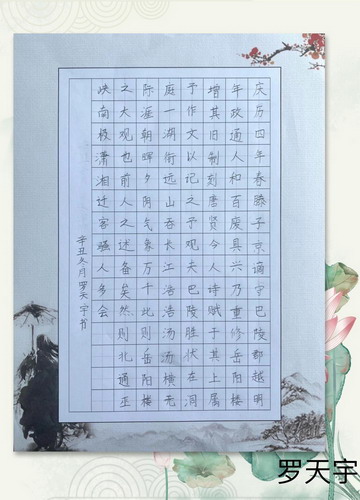 庆历四年春滕子京谪守巴陵郡越明
年政通人和百废具兴乃重修岳阳楼
增其旧制刻唐贤今人诗赋于其上属
予作文以记之予观夫巴陵胜状在洞
庭一湖衔远山吞长江浩浩汤汤横无
际涯朝晖夕阴气象万千此则岳阳楼
之大观也前人之述备矣然则北通巫
峡南极潇湘迁客骚人多会
辛丑冬月罗天宇书
罗天宇